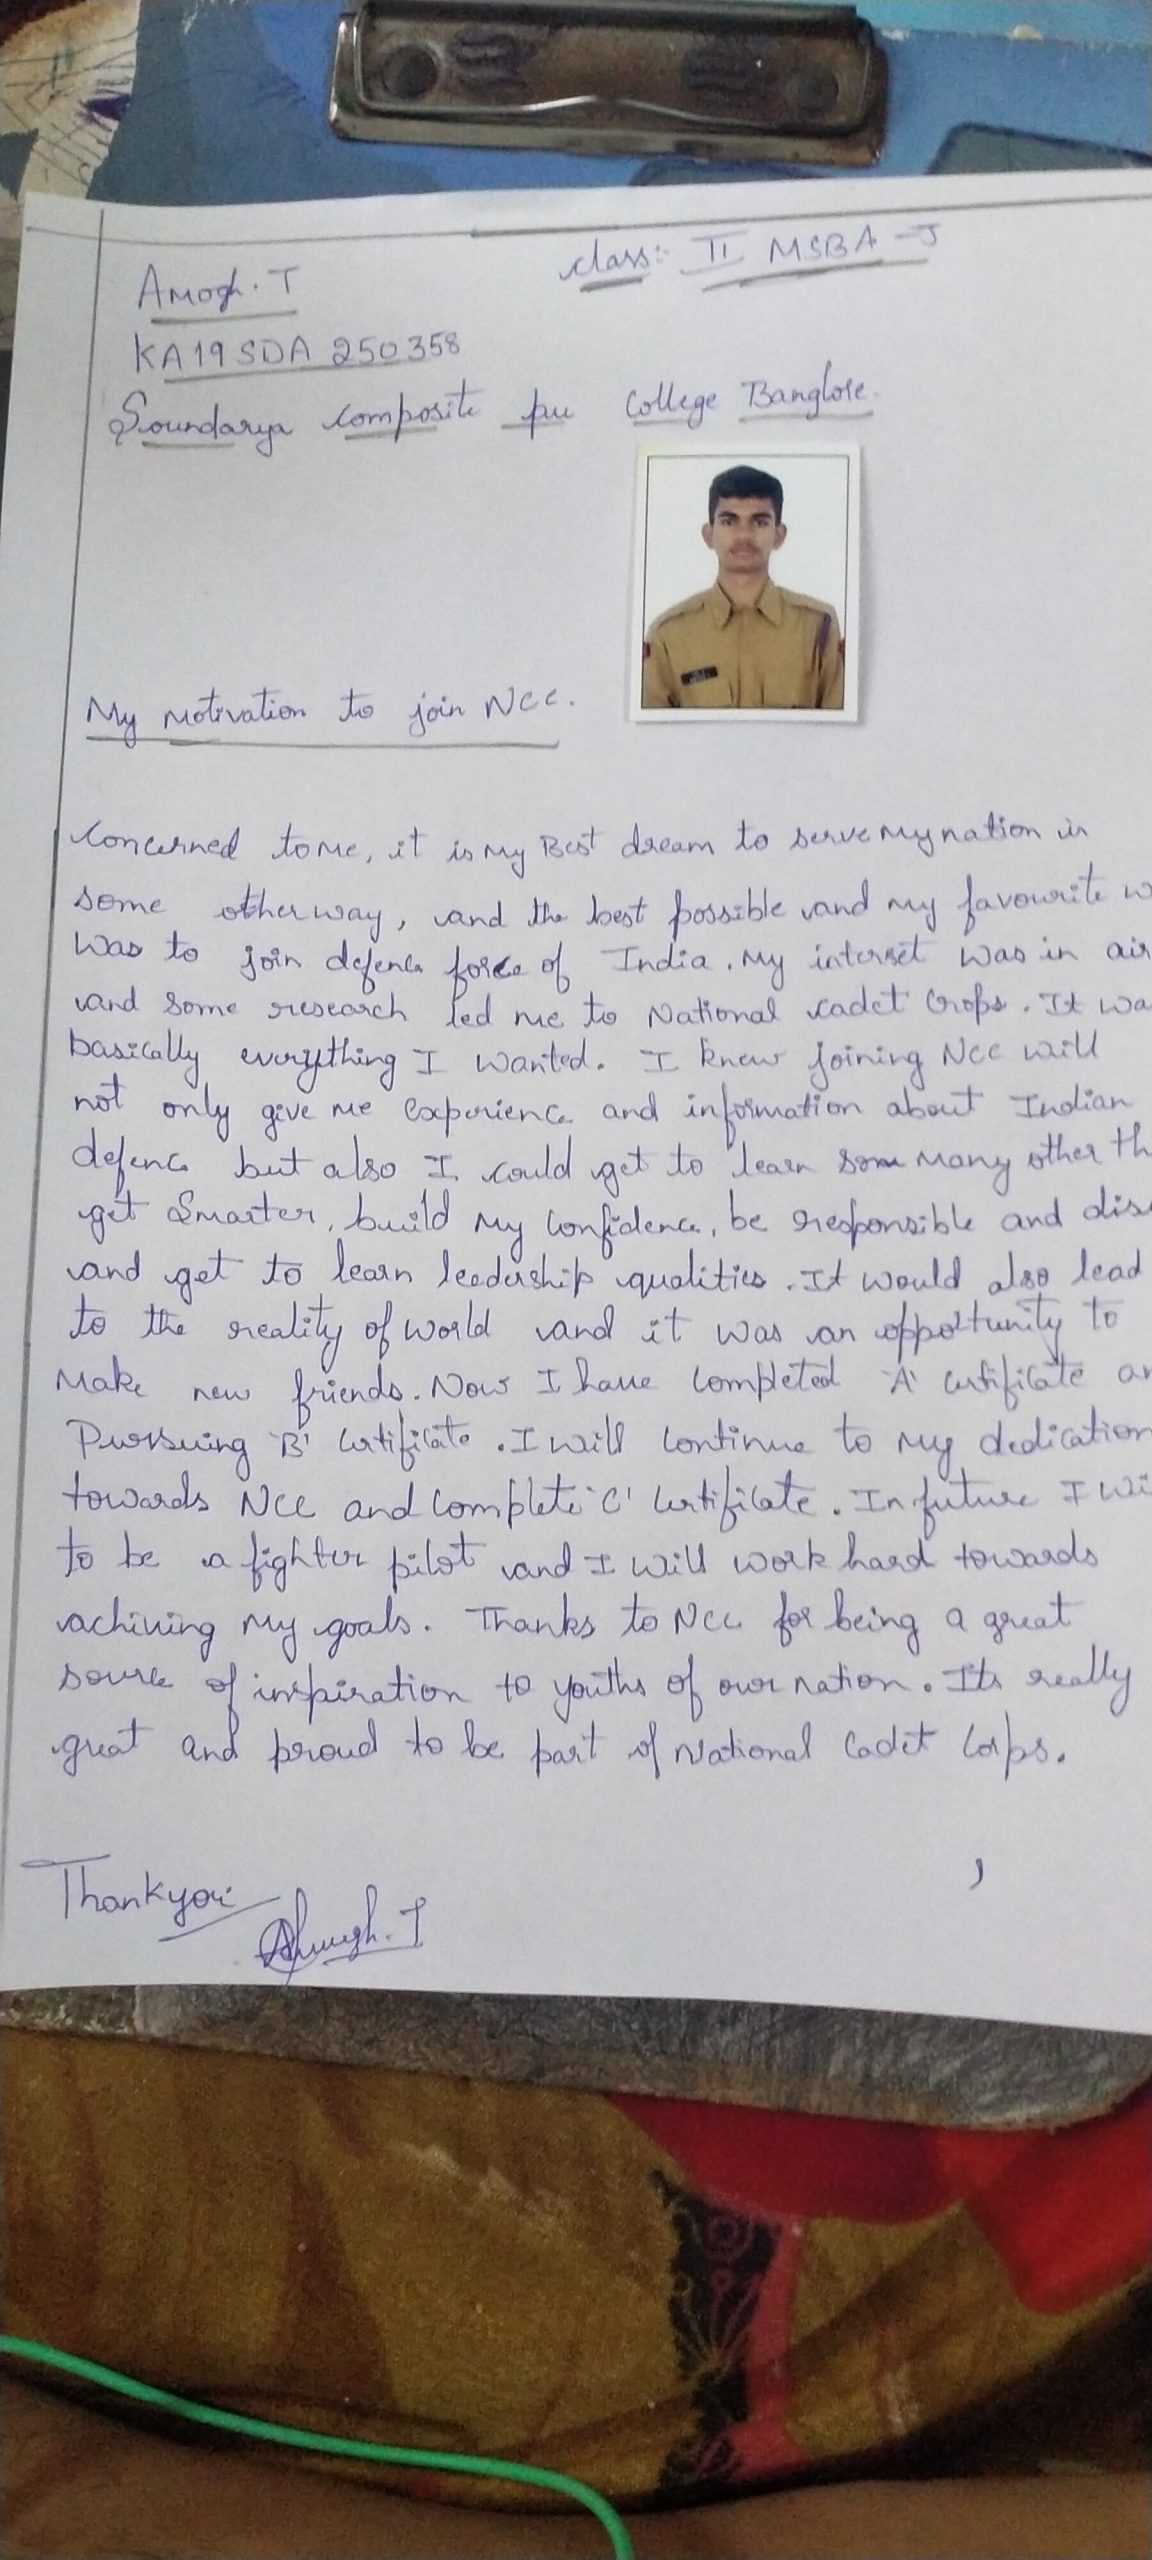 class:- II MSBA - J
Amogh. T
KA19SDA 250358
Soundarya composite pu College Banglore.
My motivation to join NCC.
Concerned to me, it is my Best dream to serve my nation in
some other way, and the best possible and my favourite w
was to join defence force of India. My interset was in air
and some research led me to National cadet Crops. It wa
basically everything I wanted. I knew joining NCC will
not only give me experience and information about Indian
defence but also I could get to learn som many other th
get Smarter, build my confidence, be responsible and dis
and get to learn leadership qualities. It would also lead
to the reality of world and it was an opportunity to
make new friends. Now I have completed 'A' certificate an
Pursuing 'B' certificate. I will continue to my dedication
towards NCC and complete 'C' certificate. In future I wi
to be a fighter pilot and I will work hard towards
achiving my goals. Thanks to NCC for being a great
source of inspiration to youths of our nation. Its really
great and proud to be part of National Cadet Corps.
Thankyou
Amogh. T